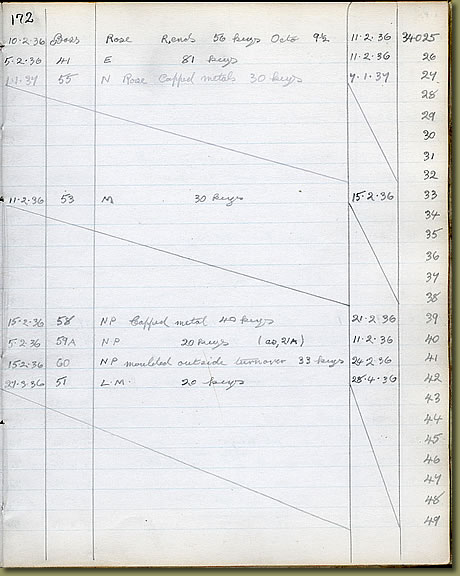 172
10.2.36 Boss Rose R.ends 56 keys Octo 9½ 11.2.36 34025
5.2.36 41 E 81 keys 11.2.36 26
1.1.37 55 N Rose Capped metals 30 keys 7.1.37 27
28
29
30
31
32
11.2.36 53 M 30 keys 15.2.36 33
34
35
36
37
38
15.2.36 58 NP Capped metal 40 keys 21.2.36 39
5.2.36 59A NP 20 keys 11.2.36 40
15.2.36 60 NP moulded outside turnover 33 keys 24.2.36 41
27.3.36 51 L.M. 20 keys 28.4.36 42
43
44
45
46
47
48
49